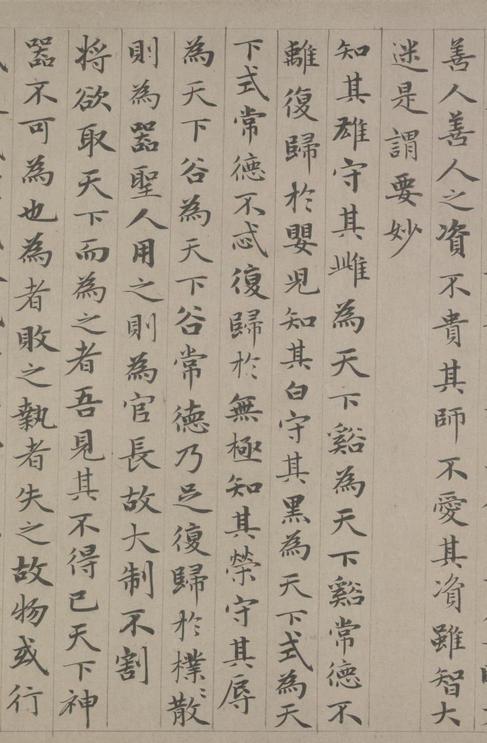 善人善人之資不貴其師不愛其資雖智大
迷是謂要妙
知其雄守其雌為天下谿為天下谿常德不
離復歸於嬰児知其白守其黒為天下式為天
下式常德不忒復歸於無極知其榮守其辱
為天下谷為天下谷常德乃足復歸於樸〻散
則為器聖人用之則為官長故大制不割
将欲取天下而為之者吾見其不得已天下神
器不可為也為者敗之執者失之故物或行